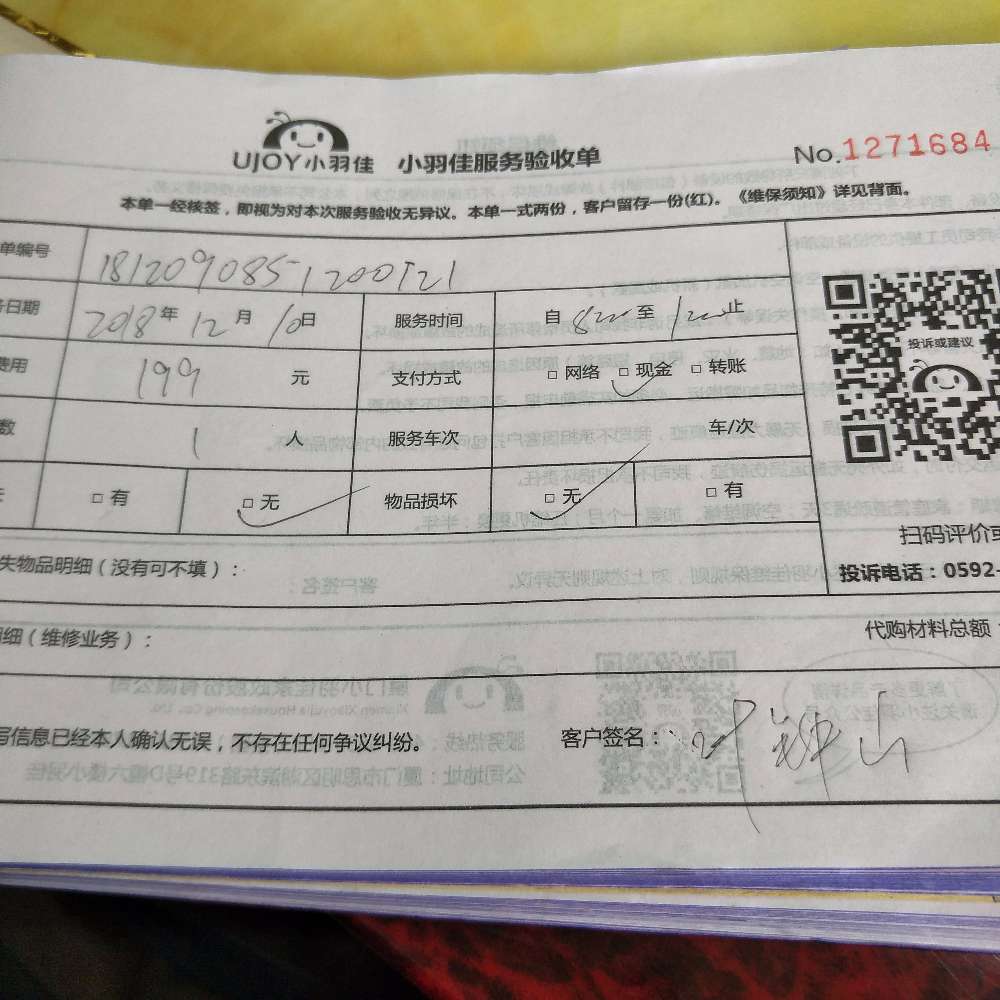 UJOY小羽佳 小羽佳服务验收单 No.1271684
本单一经核签，即视为对本次服务验收无异议。本单一式两份，客户留存一份(红)。《维保须知》详见背面。
单编号 1812090851200121
日期 2018年 12月 10日 服务时间 自 8 至 12 止
费用 199 元 支付方式 □ 网络 □ 现金 □ 转账
投诉或建议
数 1 人 服务车次 车/次
□ 有 □ 无 物品损坏 □ 无 □ 有
扫码评价或
失物品明细（没有可不填）：
投诉电话：0592-
细（维修业务）： 代购材料总额
写信息已经本人确认无误，不存在任何争议纠纷。 客户签名：